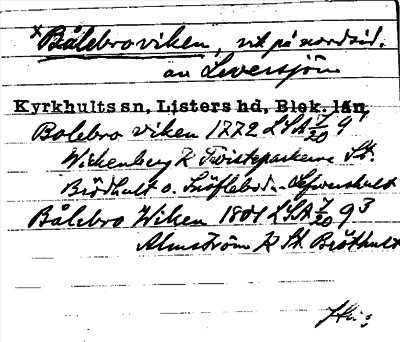 *Bålebroviken, vik på nordsid.
av Leversjön
Kyrkhults sn, Listers hd, Blek. län,
Bolebro viken 1772 LSA 7/20 9¹
Wickenberg K Twisteparkerne St.
Brödhult o. Snöflebod - Lefwershult
Bålebro Wiken 1804 LSA 7/20 9³
Almström K St. Brödhult